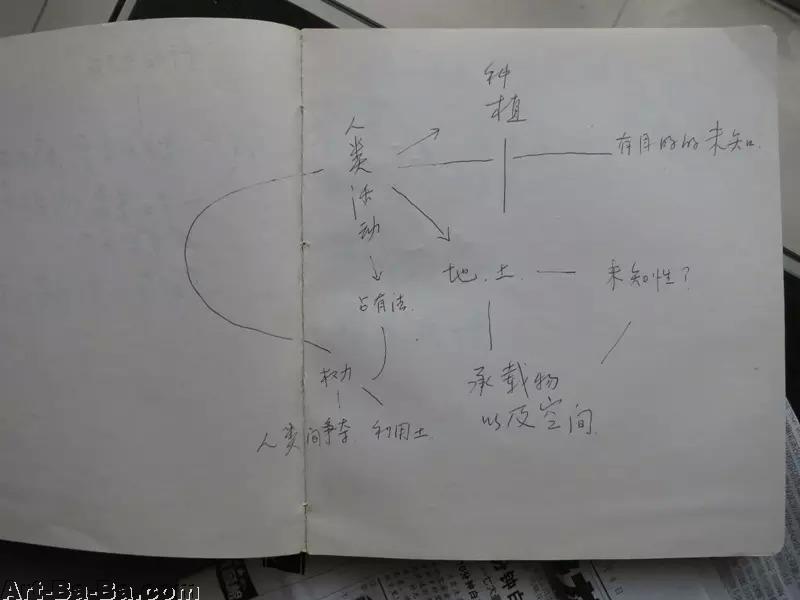 种植
人类活动
有目的的未知.
地.土.
未知性?
占有法.
权力
承载物
以及空间.
人类间争夺
利用土
Art-Ba-Ba.com
Art-Ba-Ba.com